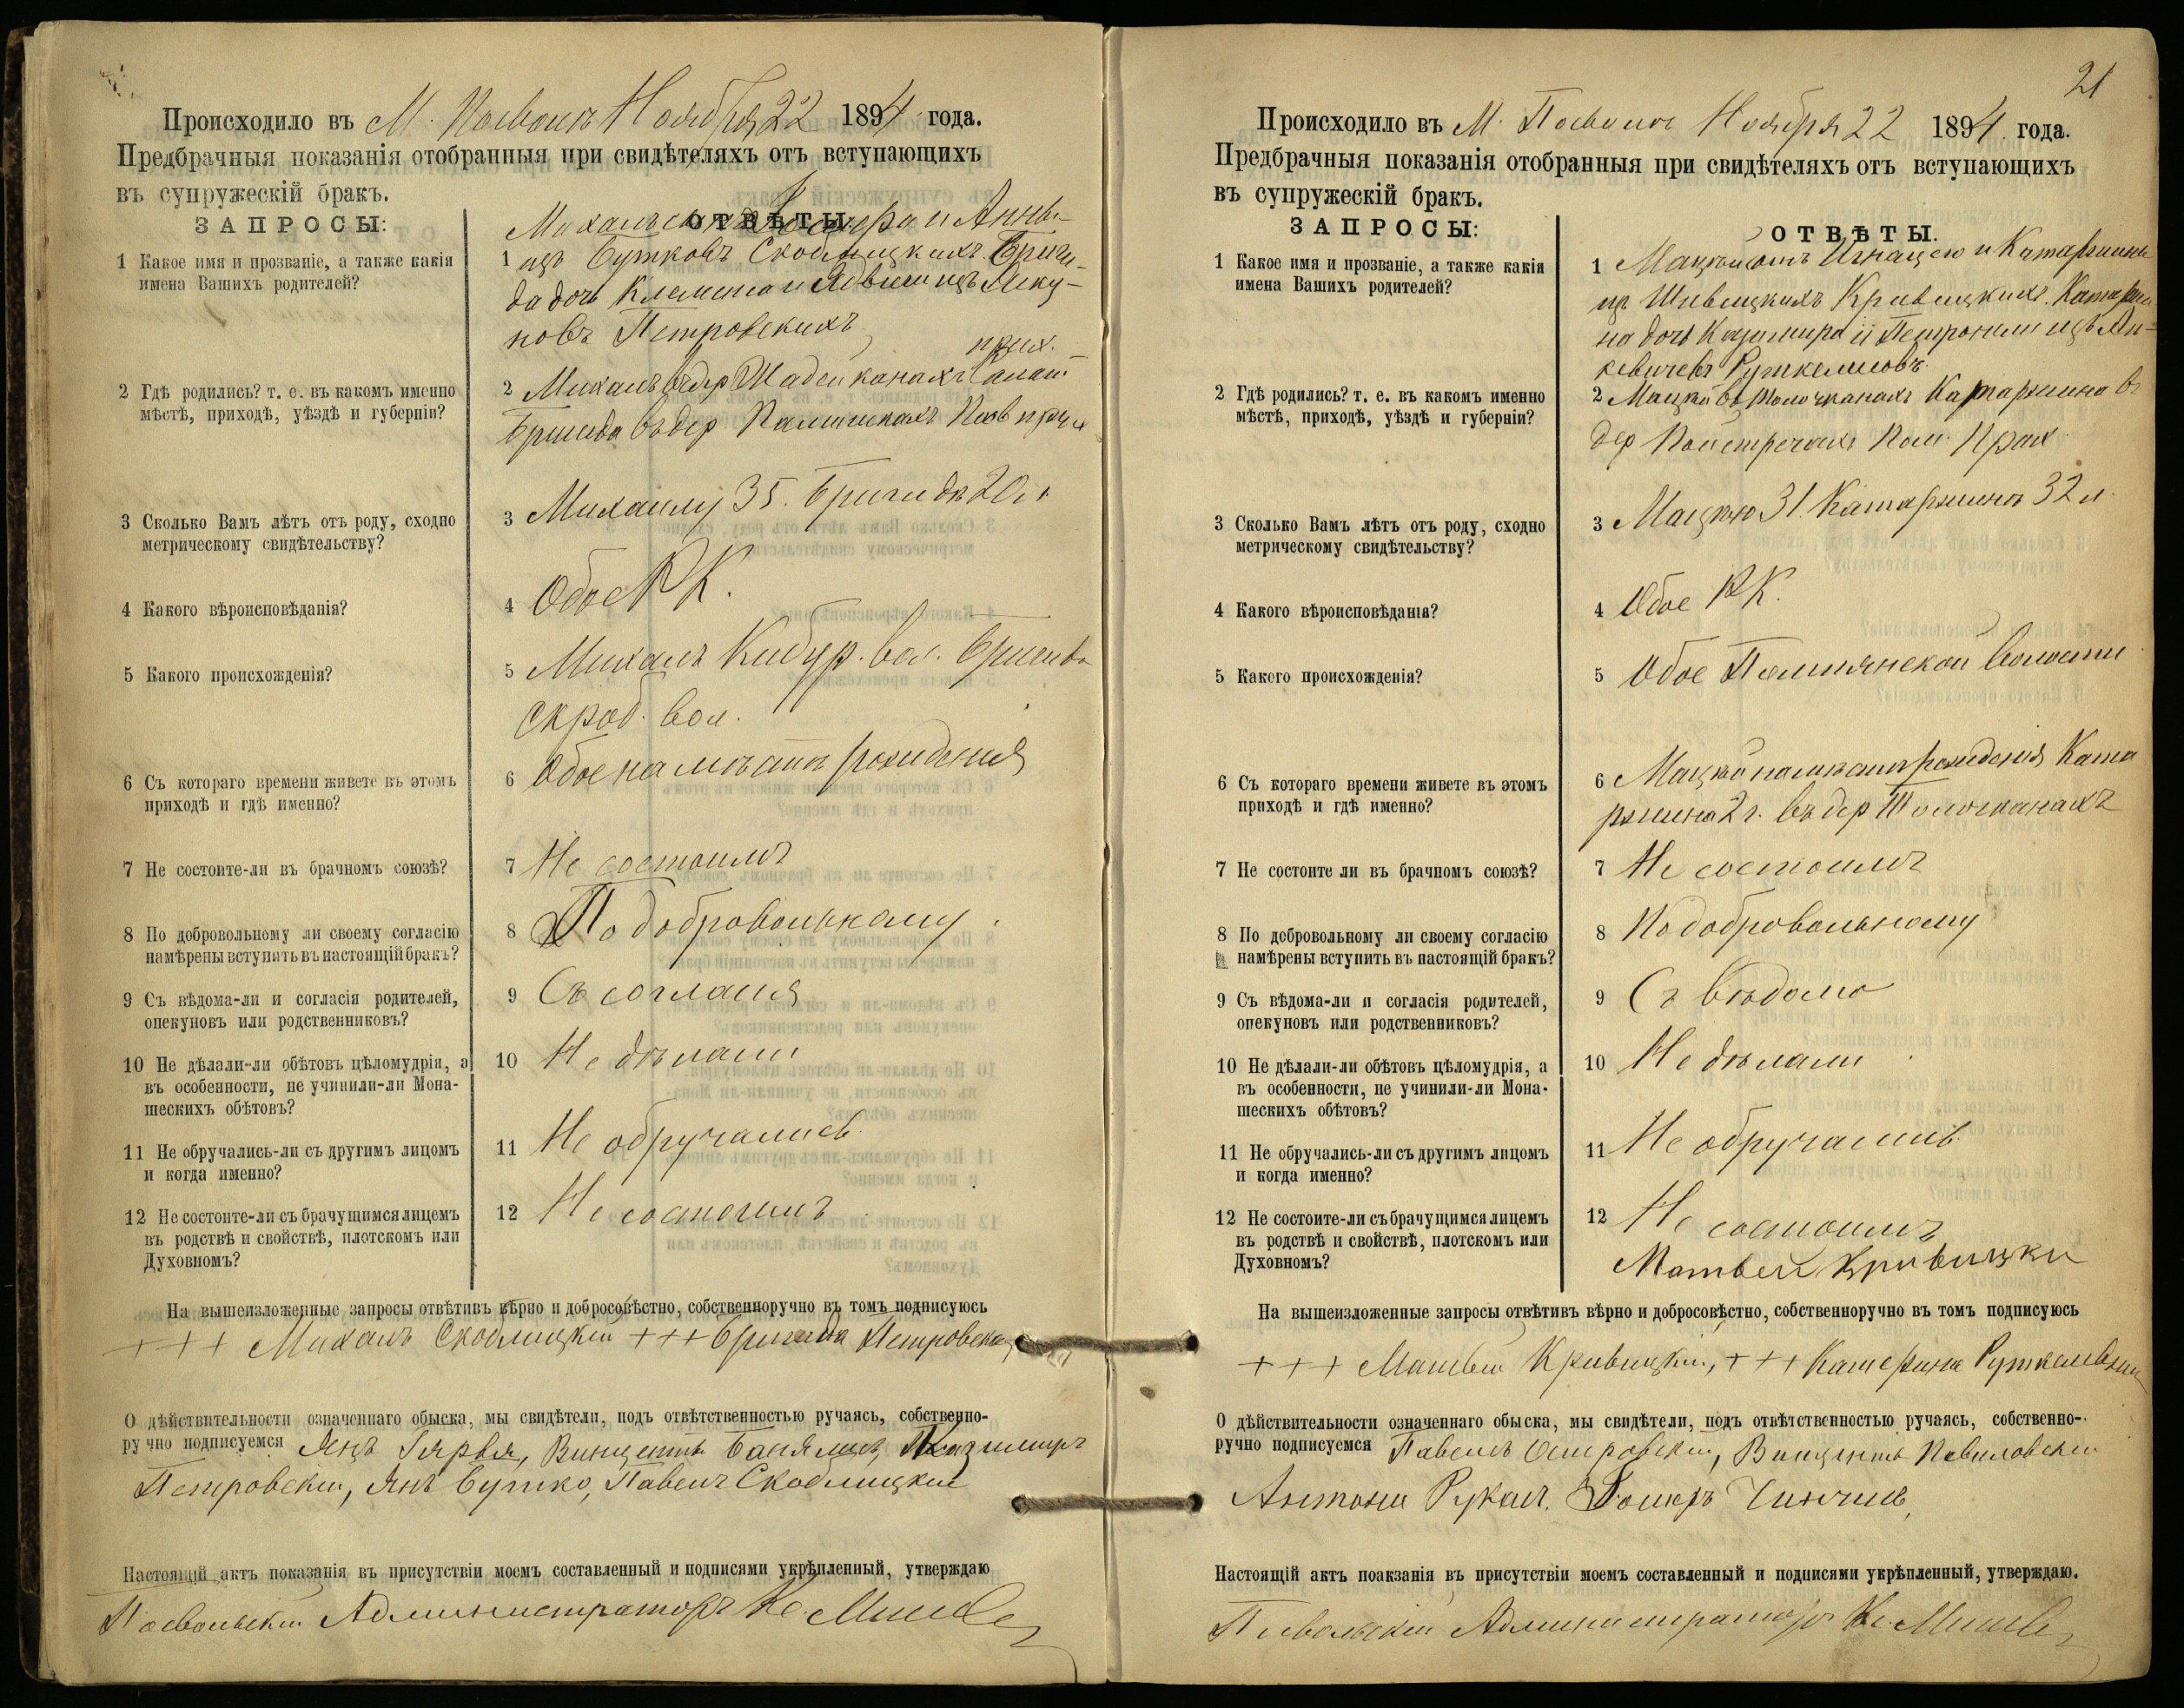 Происходило въ М. Посволѣ Ноября 22 1894 года.
Предбрачныя показанія отобранныя при свидѣтеляхъ отъ вступающихъ
въ супружескій бракъ.
ЗАПРОСЫ:
ОТВѢТЫ.
1 Какое имя и прозваніе, а также какія
имена Вашихъ родителей?
1 Михалъ и Анны
изъ Бутковъ Скоблицкихъ. Бриги-
да дочь Клеменса и Ядвиги изъ
новъ Петровскихъ
2 Гдѣ родились? т. е. въ какомъ именно
мѣстѣ, приходѣ, уѣздѣ и губерніи?
прих.
2 Михалъ въ дер
Бригида въ дер
3 Сколько Вамъ лѣтъ отъ роду, сходно
метрическому свидѣтельству?
3 Михаилу 35. Бригидѣ 20 л
4 Какого вѣроисповѣданія?
4 Обое РК.
5 Какого происхожденія?
5 Михалъ Кибур. вол. Бригида
Скроб. вол.
6 Съ котораго времени живете въ этомъ
приходѣ и гдѣ именно?
6 Обое на мѣстѣ рожденія
7 Не состоите-ли въ брачномъ союзѣ?
7 Не состоимъ
8 По добровольному ли своему согласію
намѣрены вступить въ настоящій бракъ?
8 По добровольному
9 Съ вѣдома-ли и согласія родителей,
опекуновъ или родственниковъ?
9 Съ согласія
10 Не дѣлали-ли обѣтовъ цѣломудрія, а
въ особенности, не учинили-ли Мона-
шескихъ обѣтовъ?
10 Не дѣлали
11 Не обручались-ли съ другимъ лицомъ
и когда именно?
11 Не обручались
12 Не состоите-ли съ брачущимся лицемъ
въ родствѣ и свойствѣ, плотскомъ или
Духовномъ?
12 Не состоимъ
На вышеизложенные запросы отвѣтивъ вѣрно и добросовѣстно, собственноручно въ томъ подписуюсь
+++ Михалъ Скоблицкій +++ Бригида Петровска
О дѣйствительности означеннаго обыска, мы свидѣтели, подъ отвѣтственностью ручаясь, собственно-
ручно подписуемся Янъ Винцентъ Казимиръ
Петровскій, Янъ Бутко, Павелъ Скоблицкій
Настоящій актъ показанія въ присутствіи моемъ составленный и подписями укрѣпленный, утверждаю
Посвольскій Администраторъ Кс
21
Происходило въ М. Посволѣ Ноября 22 1894 года.
Предбрачныя показанія отобранныя при свидѣтеляхъ отъ вступающихъ
въ супружескій бракъ.
ЗАПРОСЫ:
ОТВѢТЫ.
1 Какое имя и прозваніе, а также какія
имена Вашихъ родителей?
1 Мацѣй сынъ Игнацего и Катаржины
изъ Кривицкихъ. Катаржи
на дочь Казимира и Петронели изъ Ян-
кевичевъ
2 Гдѣ родились? т. е. въ какомъ именно
мѣстѣ, приходѣ, уѣздѣ и губерніи?
2 Мацѣй въ Толочканахъ Катаржина въ
дер Прих.
3 Сколько Вамъ лѣтъ отъ роду, сходно
метрическому свидѣтельству?
3 Мацѣю 31 Катаржинѣ 32 л.
4 Какого вѣроисповѣданія?
4 Обое РК.
5 Какого происхожденія?
5 Обое волости
6 Съ котораго времени живете въ этомъ
приходѣ и гдѣ именно?
6 Мацѣй на мѣстѣ рожденія Ката
ржина 2 г. въ дер Толочканахъ
7 Не состоите ли въ брачномъ союзѣ?
7 Не состоимъ
8 По добровольному ли своему согласію
намѣрены вступить въ настоящій бракъ?
8 По добровольному
9 Съ вѣдома-ли и согласія родителей,
опекуновъ или родственниковъ?
9 Съ вѣдома
10 Не дѣлали-ли обѣтовъ цѣломудрія, а
въ особенности, не учинили-ли Мона-
шескихъ обѣтовъ?
10 Не дѣлали
11 Не обручались-ли съ другимъ лицомъ
и когда именно?
11 Не обручались
12 Не состоите-ли съ брачущимся лицемъ
въ родствѣ и свойствѣ, плотскомъ или
Духовномъ?
12 Не состоимъ
Матвей Кривицки
На вышеизложенные запросы отвѣтивъ вѣрно и добросовѣстно, собственноручно въ томъ подписуюсь
+++ Матвей Кривицкій, +++ Катержина
О дѣйствительности означеннаго обыска, мы свидѣтели, подъ отвѣтственностью ручаясь, собственно-
ручно подписуемся Павелъ Островскій, Винцентъ
Антони
Настоящій актъ поакзанія въ присутствіи моемъ составленный и подписями укрѣпленный, утверждаю.
Посвольскій Администраторъ Кс